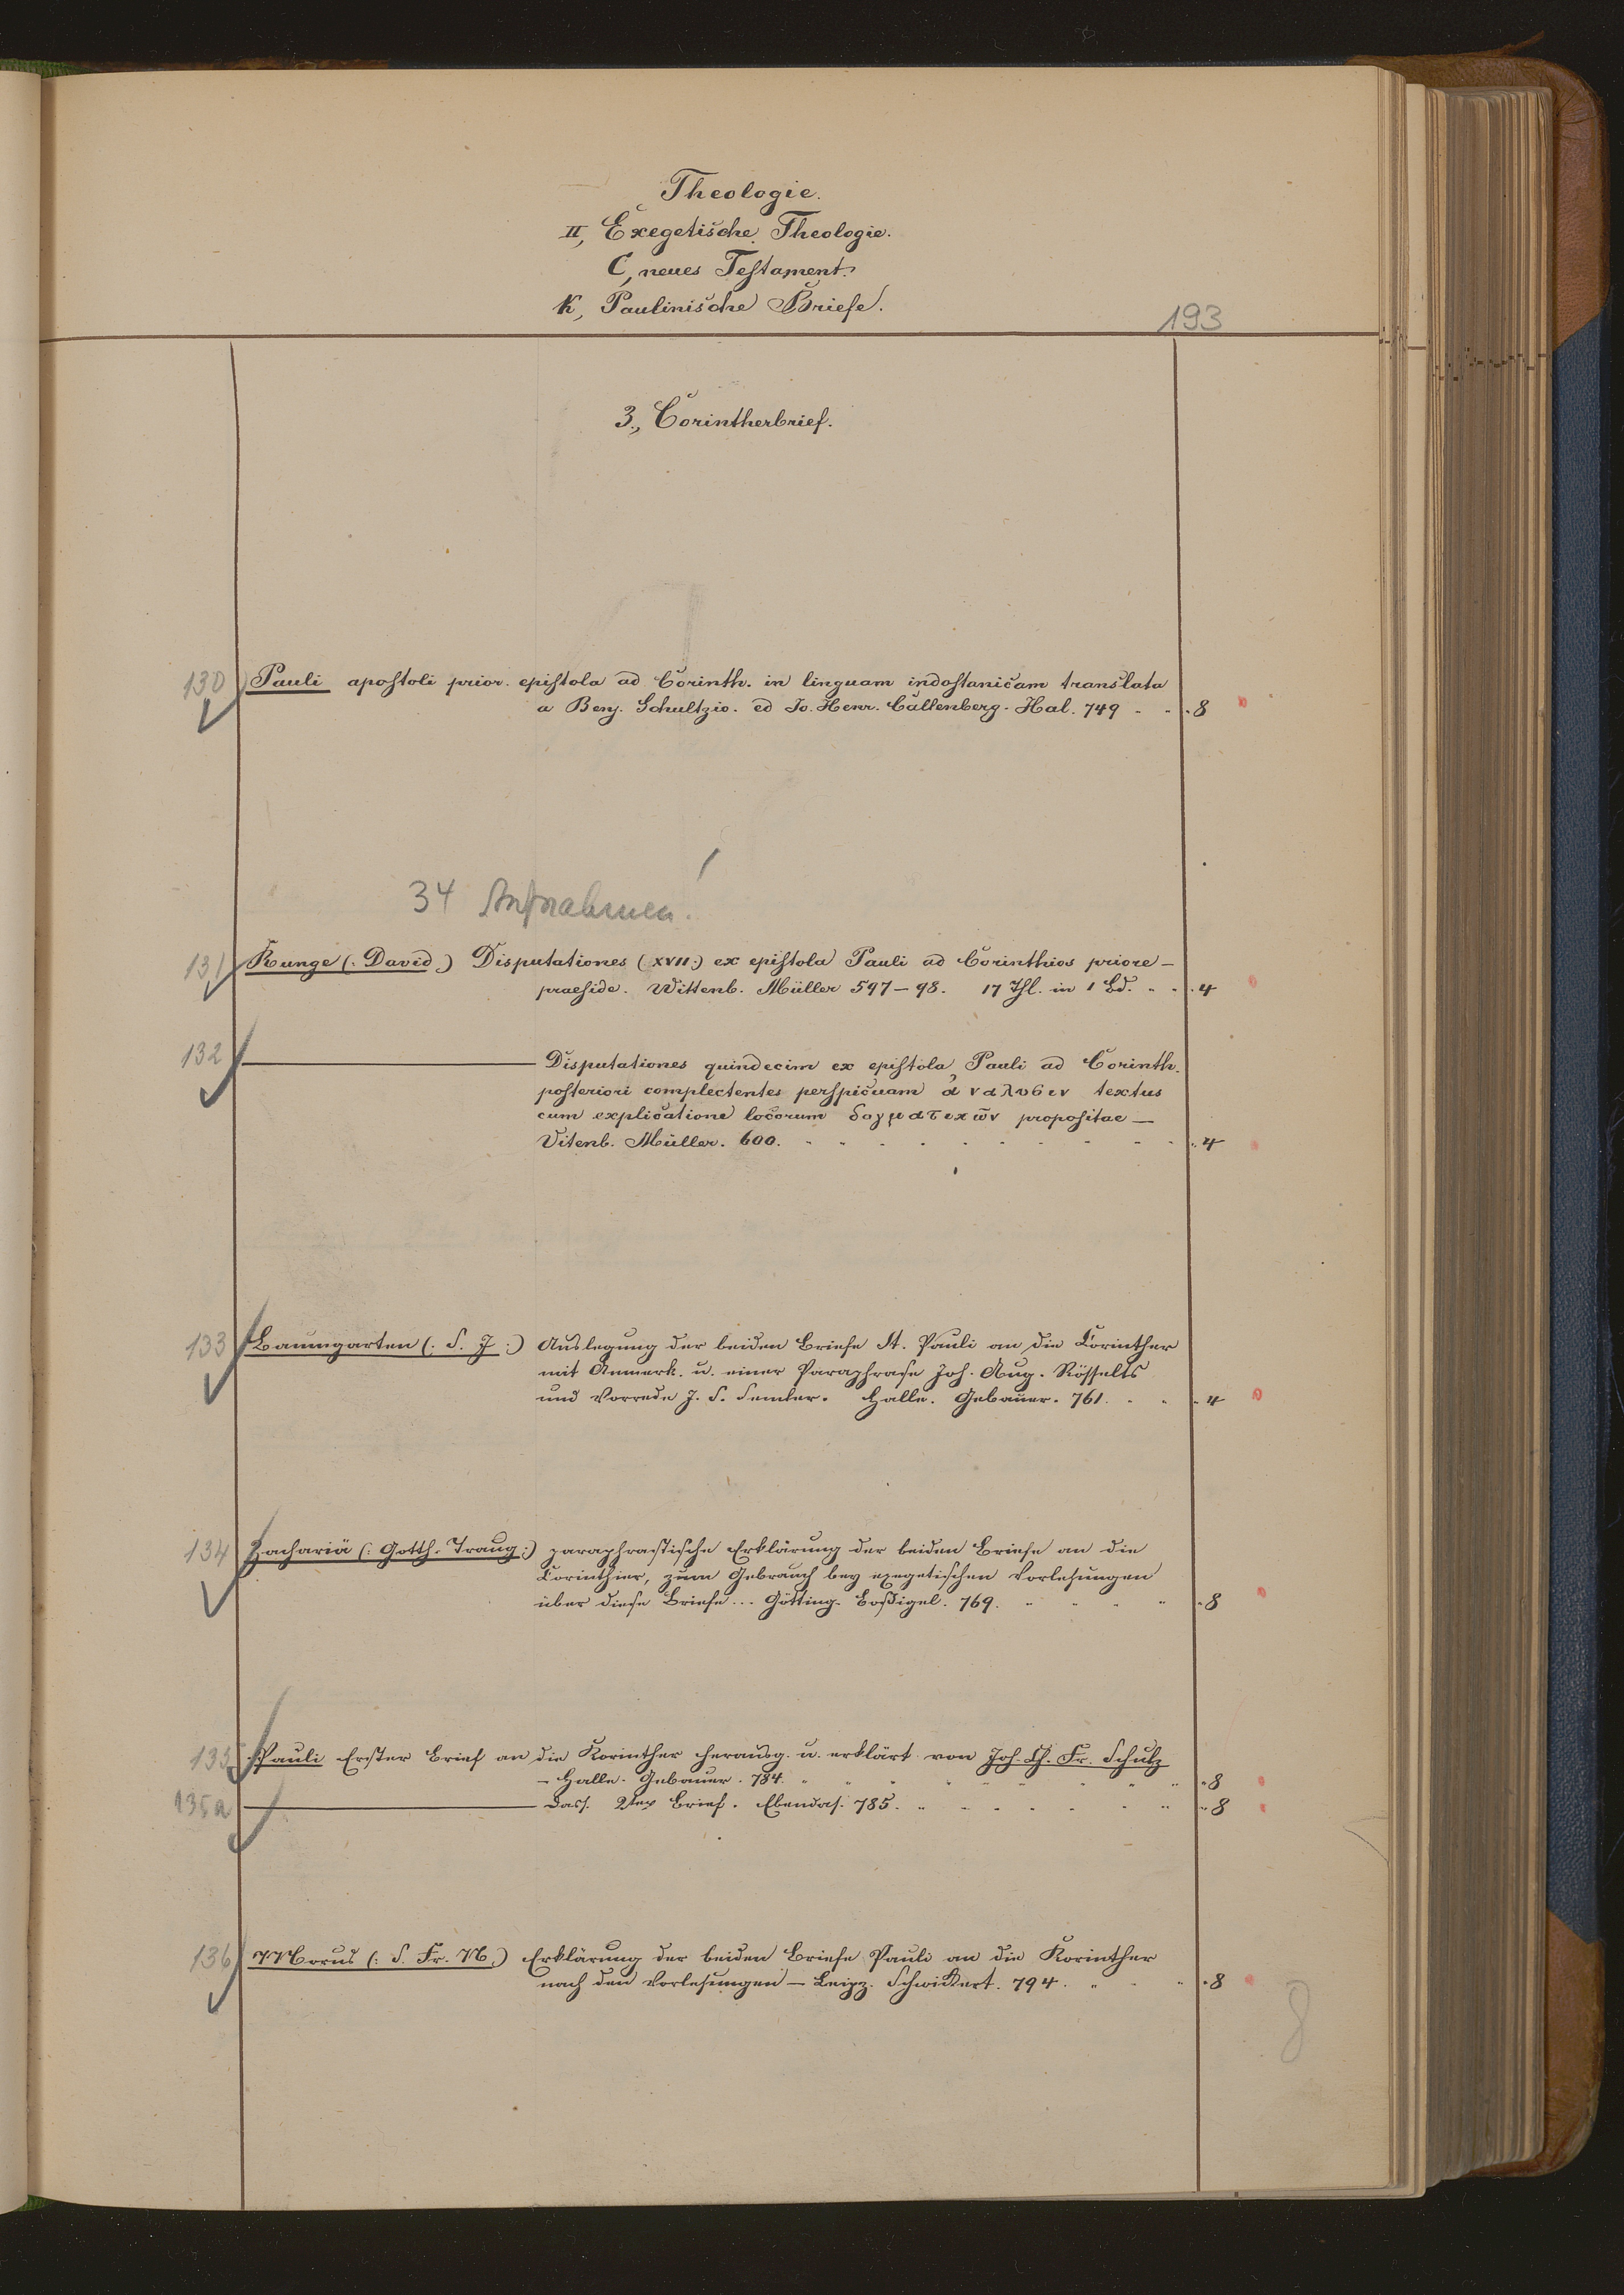 Theologie.
II, Exegetische Theologie.
C, neues Testament.
K, Paulinische Briefe.
193
3., Corintherbrief.
130 Pauli apostoli prior. epistola ad Corinth. in linguam indostanicam translata
a Benj. Schultzio. ed Jo. Henr. Callenberg. Hal. 749 " " " 8
34 Aufnahmen!
131 Runge (: David.) Disputationes (XVII:) ex epistola Pauli ad Corinthios priore —
praeside. Wittenb. Müller 597–98. 17 Thl. in 1 Bd. " " " 4
132 ——— Disputationes quindecim ex epistola Pauli ad Corinth.
posteriori complectentes perspicuam ἀναλυσιν textus
cum explicatione locorum δογματικῶν propositae —
Vitenb. Müller. 600. " " " " " " " " " " 4
133 Baumgarten (: S. J :) Auslegung der beiden Briefe St. Pauli an die Corinther
mit Anmerk. u. einer Paraphrase Joh. Aug. Nösselts
und Vorrede J. S. Semler. Halle. Gebauer. 761. " " " 4
134 Zachariä (: Gotth. Traug:) paraphrastische Erklärung der beiden Briefe an die
Corinthier, zum Gebrauch bey exegetischen Vorlesungen
über diese Briefe ... Götting. Boßigel. 769. " " " " " 8
135 Pauli Erster Brief an die Korinther herausg. u. erklärt von Joh. Ch. Fr. Schulz
– Halle. Gebauer. 784. " " " " " " " " " 8
135a ——— Dass. 2ter Brief. Ebendas. 785. " " " " " " " 8
136 Morus (: S. Fr. N.) Erklärung der beiden Briefe Pauli an die Korinther
nach den Vorlesungen — Leipz. Schwickert. 794. " " " " 8
8